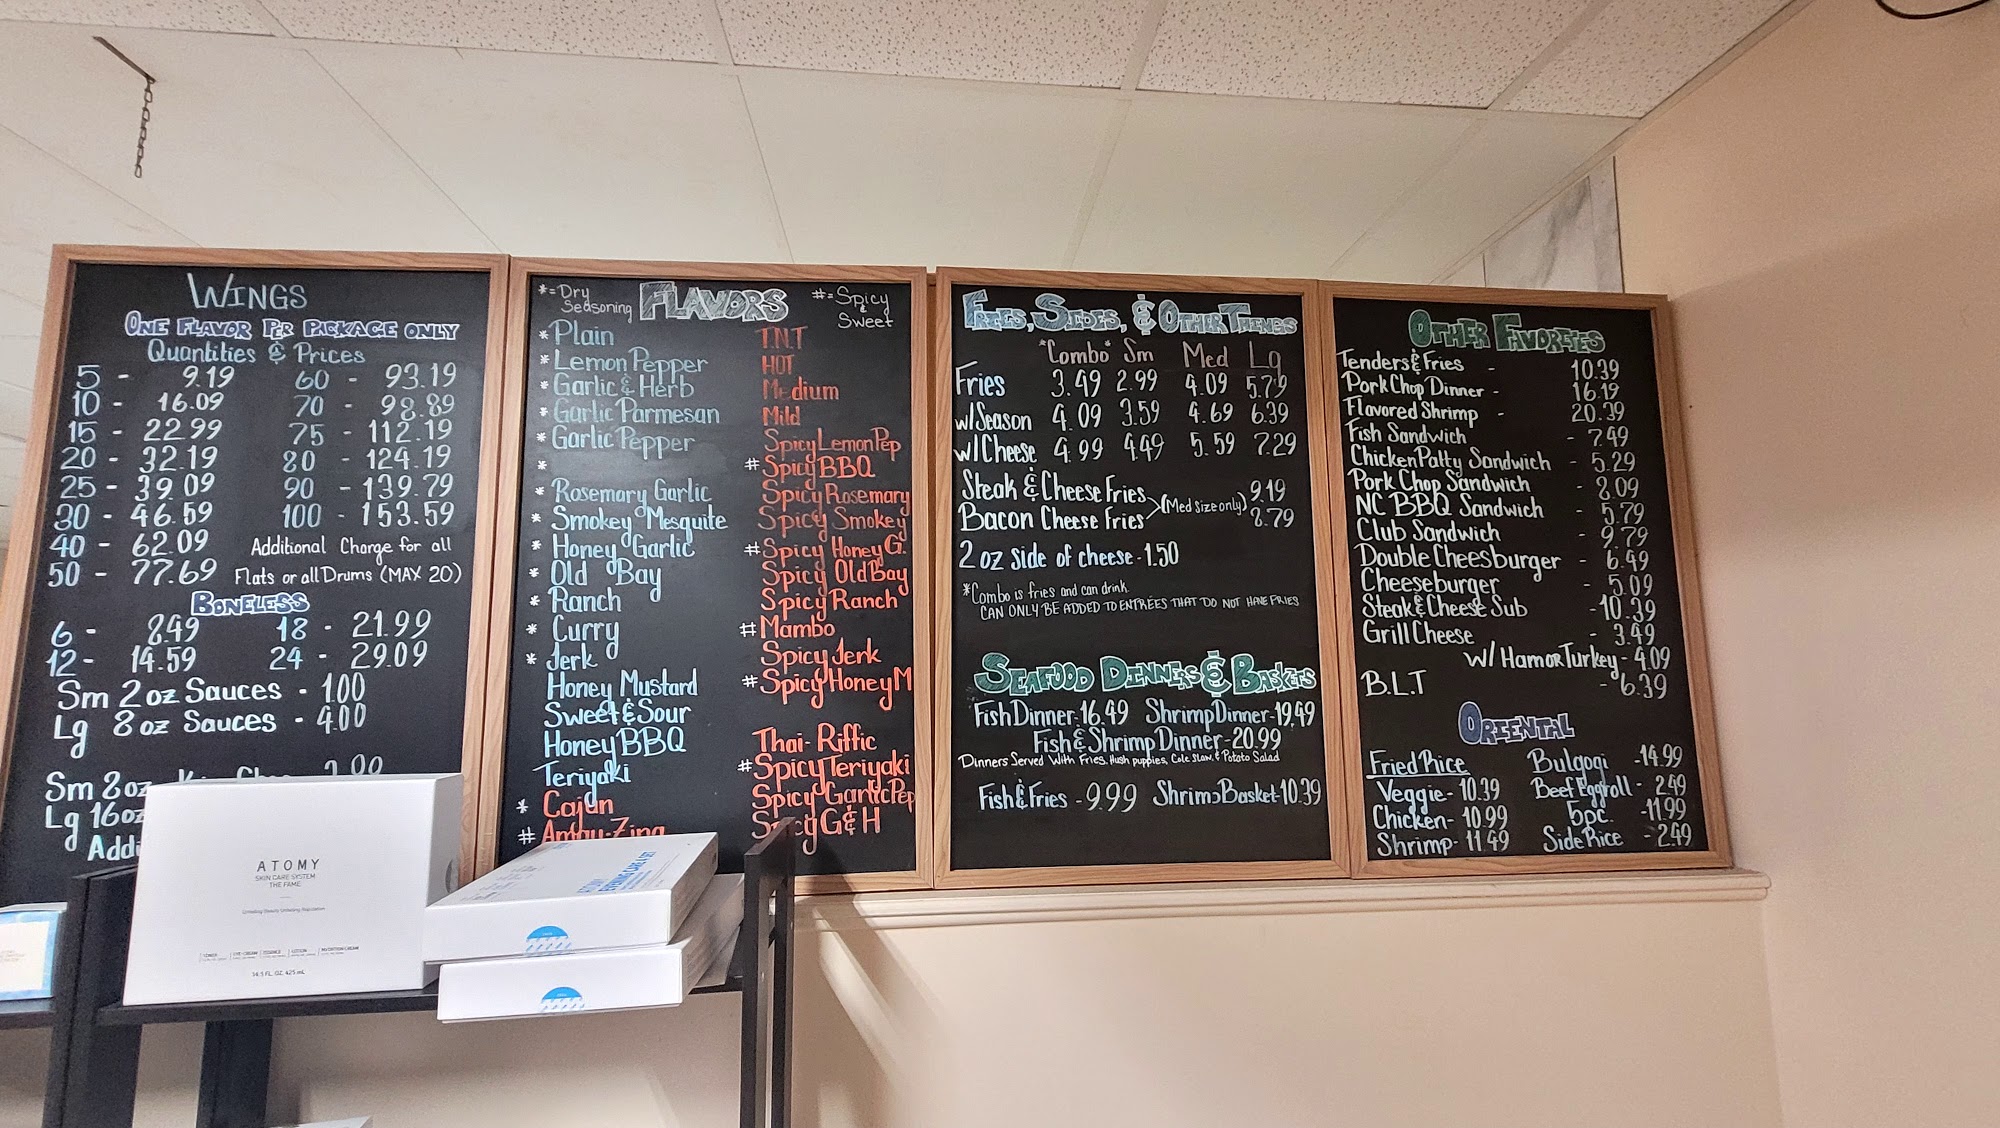 WINGS
ONE FLAVOR PER PACKAGE ONLY
Quantities & Prices
5 - 9.19 60 - 93.19
10 - 16.09 70 - 98.89
15 - 22.99 75 - 112.19
20 - 32.19 80 - 124.19
25 - 39.09 90 - 139.79
30 - 46.59 100 - 153.59
40 - 62.09 Additional Charge for all
50 - 77.69 Flats or all Drums (MAX 20)
BONELESS
6 - 8.49 18 - 21.99
12 - 14.59 24 - 29.09
Sm 2 oz Sauces - 1.00
Lg 8 oz Sauces - 4.00
Sm 8oz
Lg 16oz
*= Dry Seasoning FLAVORS #= Spicy & Sweet
* Plain T.N.T
* Lemon Pepper HOT
* Garlic & Herb Medium
* Garlic Parmesan Mild
* Garlic Pepper Spicy Lemon Pep
* # Spicy BBQ
* Rosemary Garlic Spicy Rosemary
* Smokey Mesquite Spicy Smokey
* Honey Garlic # Spicy Honey G.
* Old Bay Spicy Old Bay
* Ranch Spicy Ranch
* Curry # Mambo
* Jerk Spicy Jerk
Honey Mustard # Spicy Honey M
Sweet & Sour
Honey BBQ Thai-Riffic
Teriyaki # Spicy Teriyaki
* Cajun Spicy Garlic Pep
# Amay-Zing Spicy G & H
FRIES, SIDES, & OTHER THINGS
*Combo* Sm Med Lg
Fries 3.49 2.99 4.09 5.79
w/Season 4.09 3.59 4.69 6.39
w/Cheese 4.99 4.49 5.59 7.29
Steak & Cheese Fries 9.19
(Med size only)
Bacon Cheese Fries 8.79
2 oz Side of cheese - 1.50
*Combo is fries and can drink.
CAN ONLY BE ADDED TO ENTRÉES THAT DO NOT HAVE FRIES
SEAFOOD DINNERS & BASKETS
Fish Dinner - 16.49 Shrimp Dinner - 19.49
Fish & Shrimp Dinner - 20.99
Dinners Served With Fries, Hush puppies, Cole Slaw, & Potato Salad
Fish & Fries - 9.99 Shrimp Basket - 10.39
OTHER FAVORITES
Tenders & Fries - 10.39
Pork Chop Dinner - 16.19
Flavored Shrimp - 20.39
Fish Sandwich - 7.49
Chicken Patty Sandwich - 5.29
Pork Chop Sandwich - 8.09
NC BBQ Sandwich - 5.79
Club Sandwich - 9.79
Double Cheesburger - 6.49
Cheeseburger - 5.09
Steak & Cheese Sub - 10.39
Grill Cheese - 3.49
w/ Ham or Turkey - 4.09
B.L.T - 6.39
ORIENTAL
Fried Rice Bulgogi - 14.99
Veggie - 10.39 Beef Eggroll - 2.49
Chicken - 10.99 5pc. - 11.99
Shrimp - 11.49 Side Rice - 2.49
ATOMY
SKIN CARE SYSTEM
THE FAME
14.5 FL. OZ. 425 mL
ATOMY
EVENING CARE 4 SET